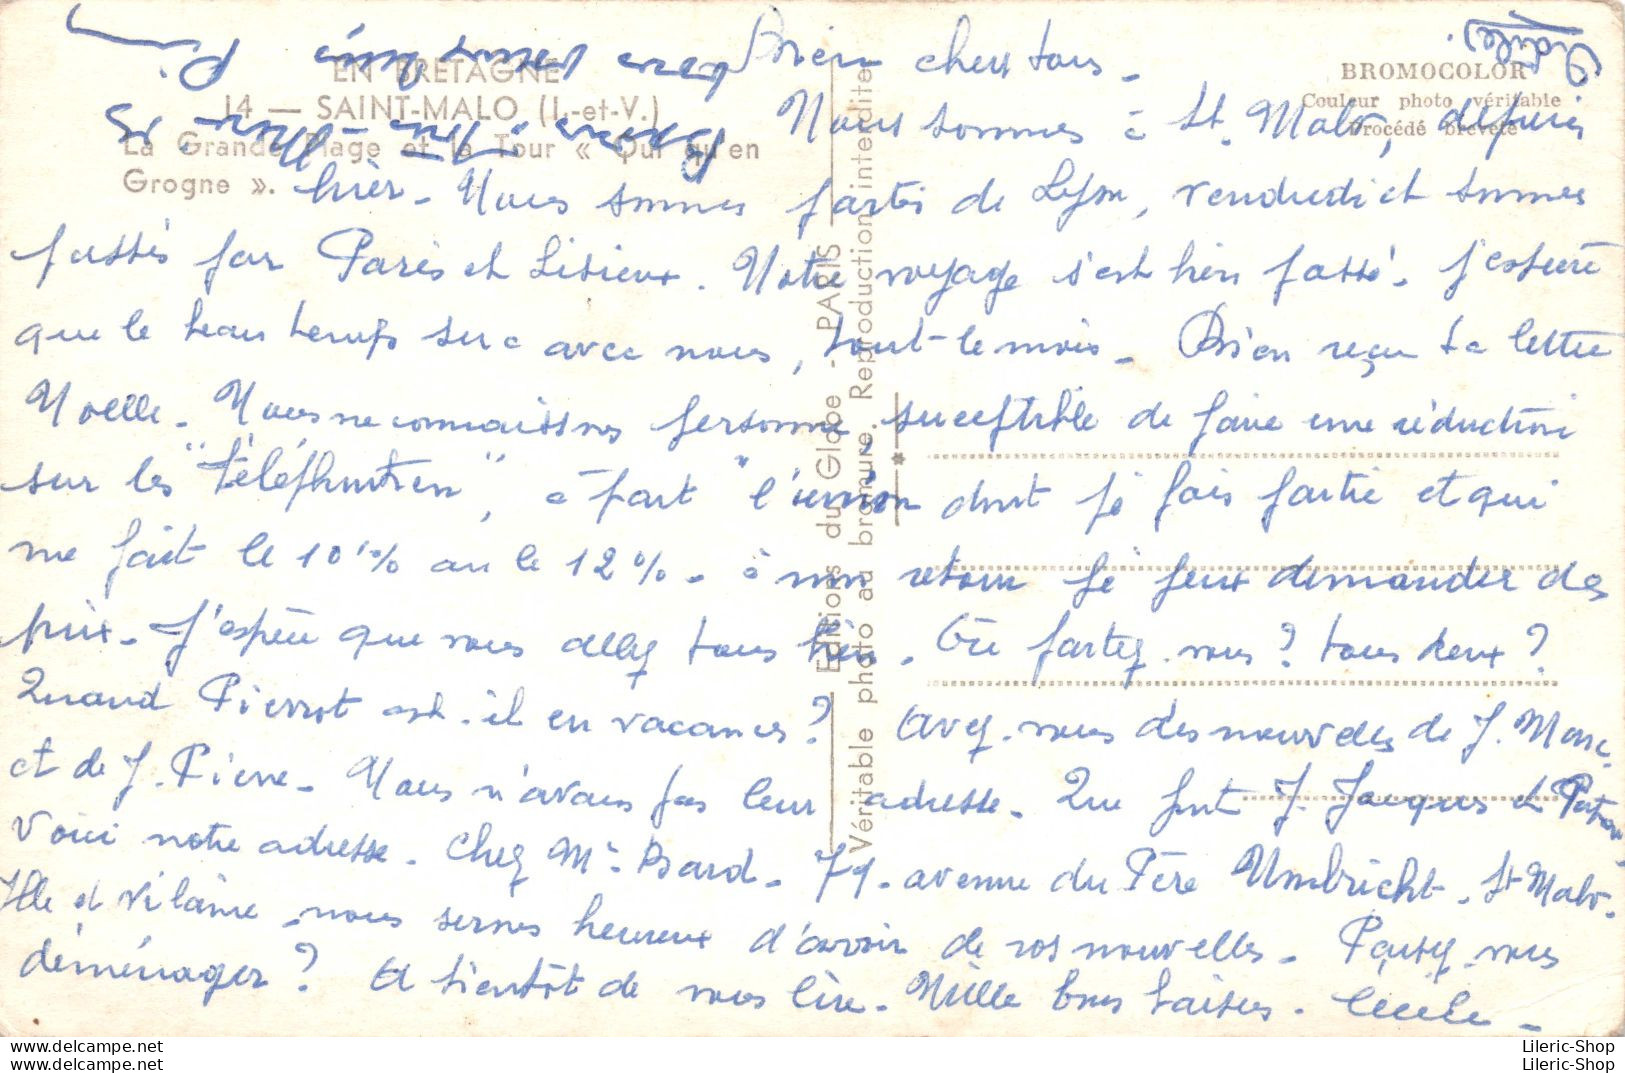 EN BRETAGNE
14 — SAINT-MALO (I.-et-V.)
La Grande Plage et la Tour « Qui qu'en
Grogne ».
BROMOCOLOR
Couleur photo véritable
Procédé breveté
Editions du Globe - PARIS
Véritable photo au bromure. Reproduction interdite
Bien chers tous.
Nous sommes à St. Malo, depuis
hier. Nous sommes partis de Lyon, vendredi et sommes
passés par Paris et Lisieux. Notre voyage s'est bien passé. J'espère
que le beau temps sera avec nous, tout le mois. Bien reçu ta lettre
Noelle. Nous ne connaissons personne, susceptible de faire une réduction
sur les "téléphunken", à part "l'union dont je fais partie et qui
me fait le 10% ou le 12%. à mon retour je peux demander des
prix. J'espère que vous allez tous bien. Où partez-vous? tous deux?
Quand Pierrot est-il en vacances? Avez-vous des nouvelles de J. Marc
et de J. Pierre. Nous n'avons pas leur adresse. Que font J. Jacques et
Voici notre adresse. Chez Mr Bard. 79. avenue du Père Umbricht. St Malo.
Ille et Vilaine. nous serons heureux d'avoir de vos nouvelles. Pensez-vous
déménager? A bientôt de vous lire. Mille bons baisers. Cécile.
Lileric-Shop
Lileric-Shop
www.delcampe.net
www.delcampe.net